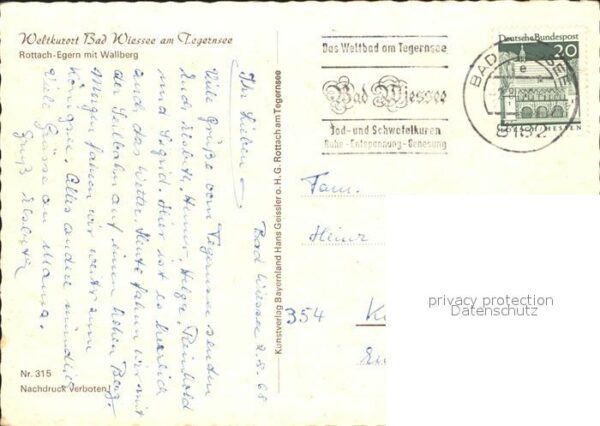 Weltkurort Bad Wiessee am Tegernsee
Rottach-Egern mit Wallberg
Ihr Lieben
Bad Wiessee 2.5.68
Viele Grüße vom Tegernsee senden
Euch Elsbeth, Helga, Reinhold
und Sigrid. Hier ist es herrlich
auch das Wetter. Heute fahren wir mit
der Seilbahn auf einen hohen Berg.
Morgen fahren wir weiter zum
Königsee. Alles andere mündlich
Viele Grüsse an Mama.
Gruß Elsbeth
Nr. 315
Nachdruck verboten!
Kunstverlag Bayernland Hans Geissler o.H.G. Rottach am Tegernsee
Das Weltbad am Tegernsee
Bad Wiessee
Jod- und Schwefelkuren
Ruhe - Entspannung - Genesung
Deutsche Bundespost
20
LORSCH/HESSEN
BAD WIESSEE
Fam.
Heinz
354 K
privacy protection
Datenschutz